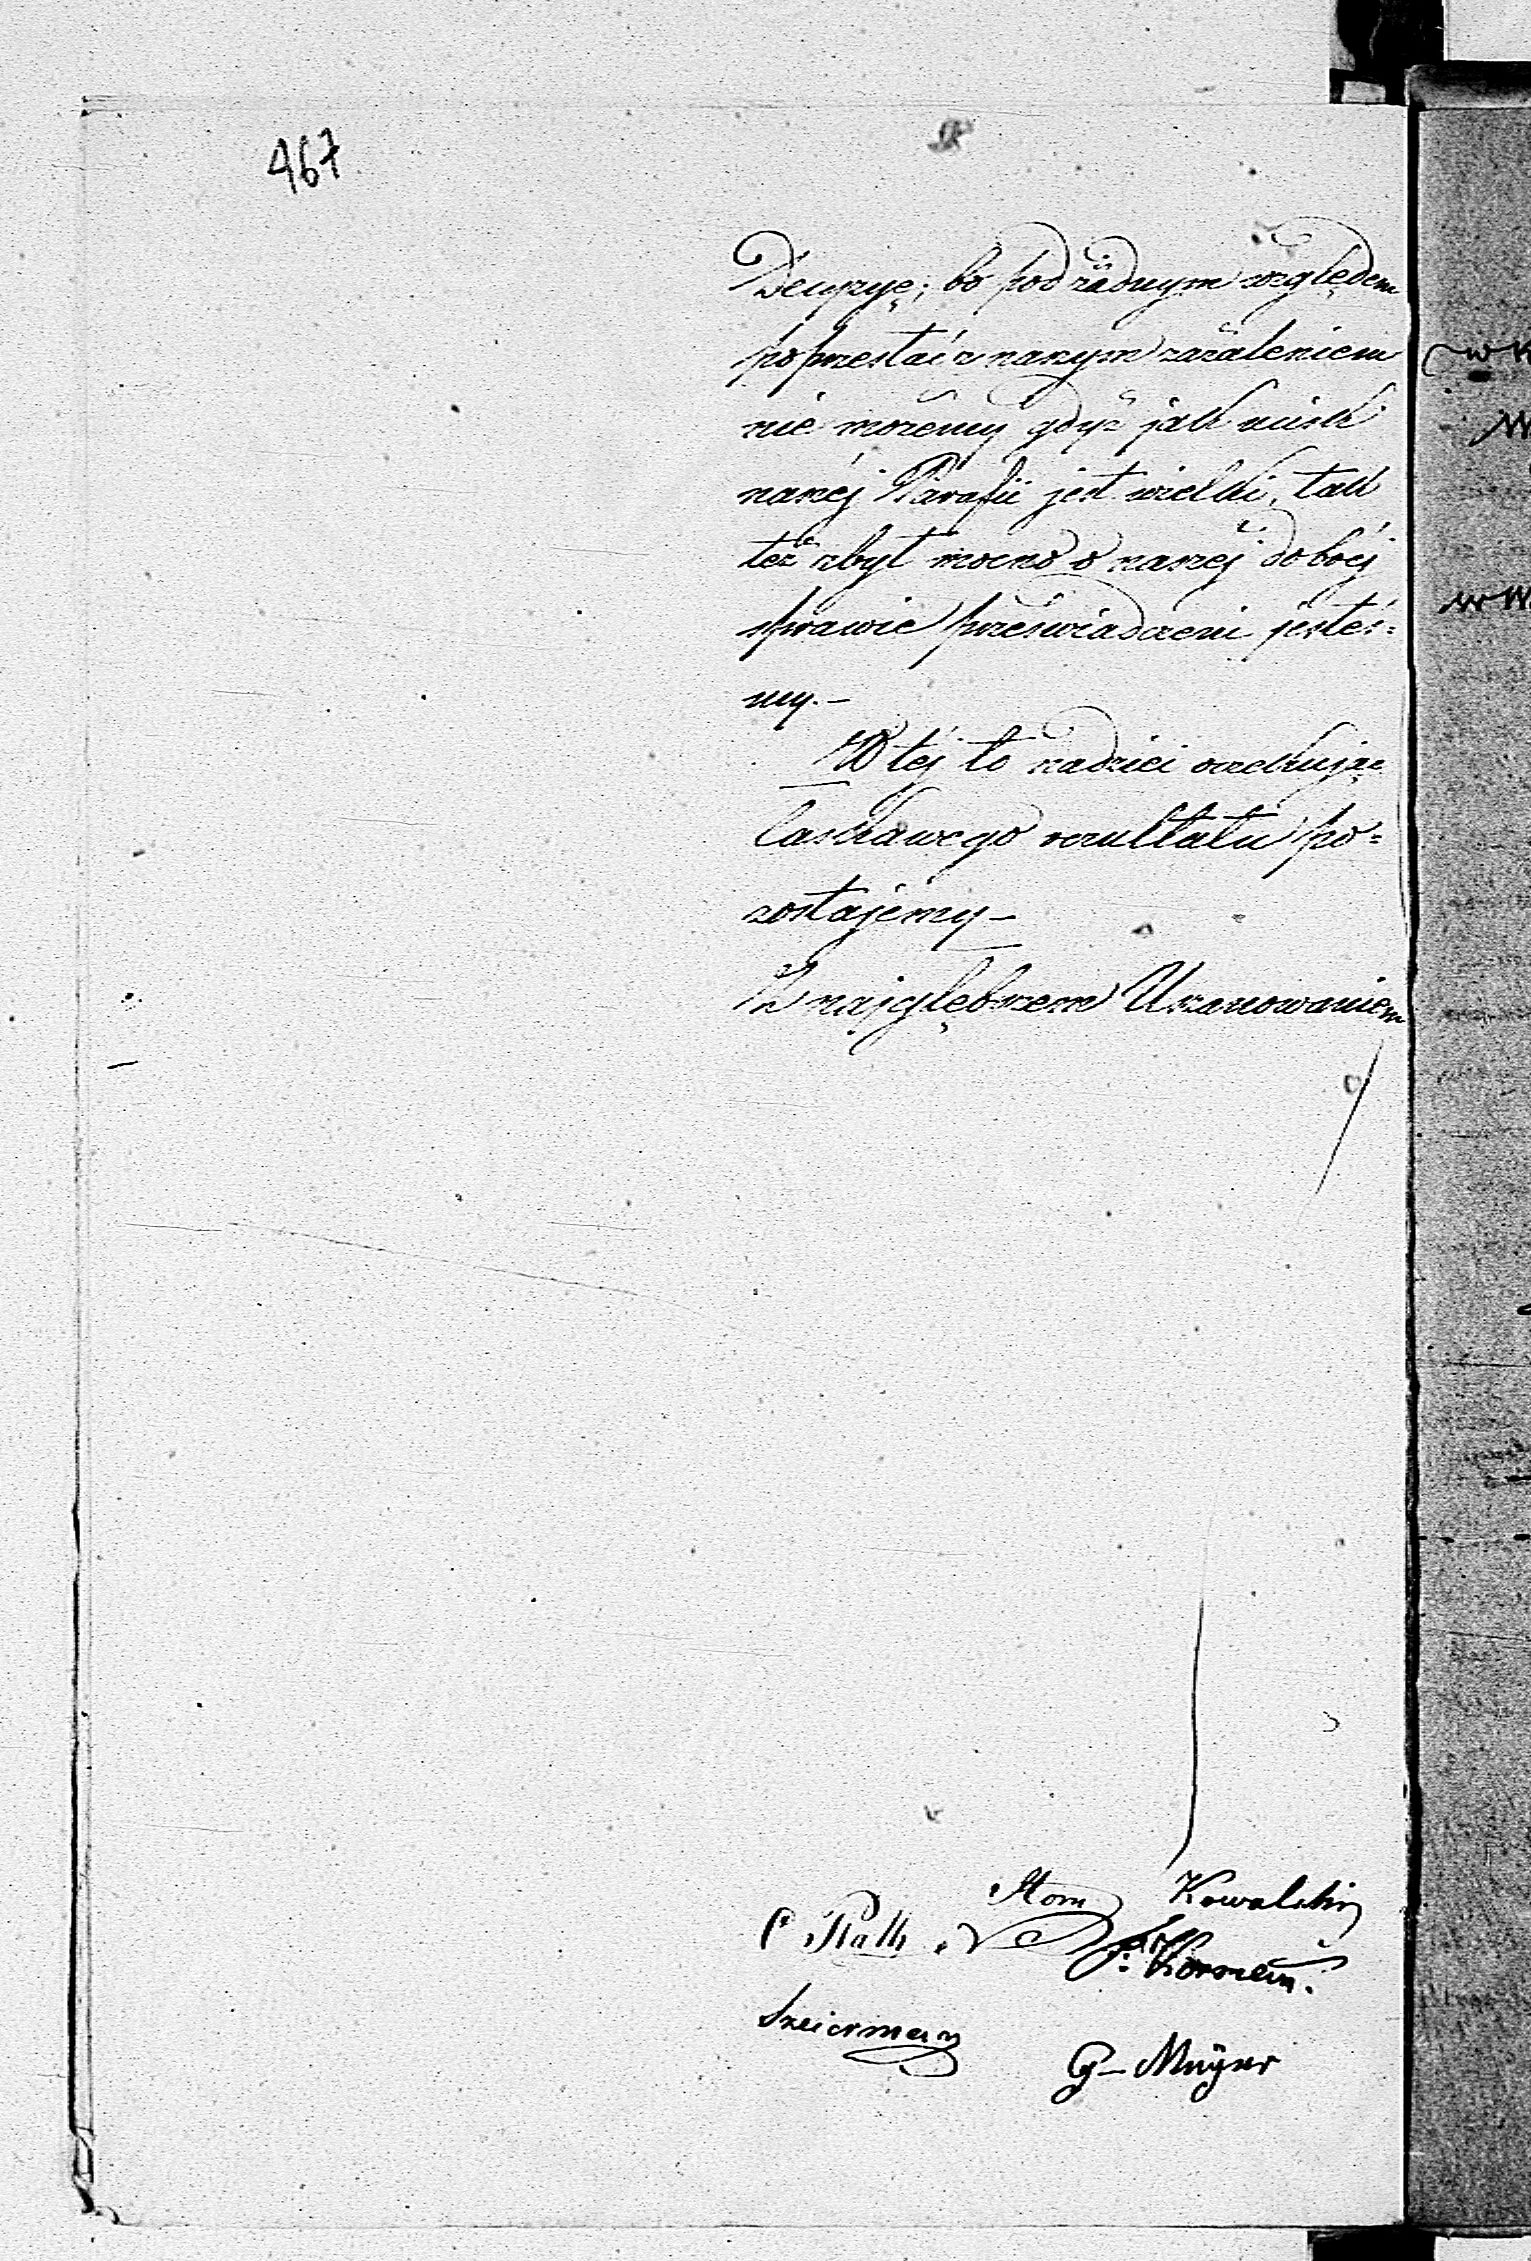 467
Decyzyę; bo pod żadnym względem
poprzestać z naszym zażaleniem
nie możemy gdyż jak ucisk
naszéj Parafii jest wielki, tak
też zbyt mocno o naszéj dobréj
sprawie przeświadczeni jesteś=
my.—
W téj to nadziei oczekując
łaskawego rezultatu po=
zostajemy—
Z najgłębszem Uszanowaniem
Kowalski
C Rath
Szeierman
G— Mayzer